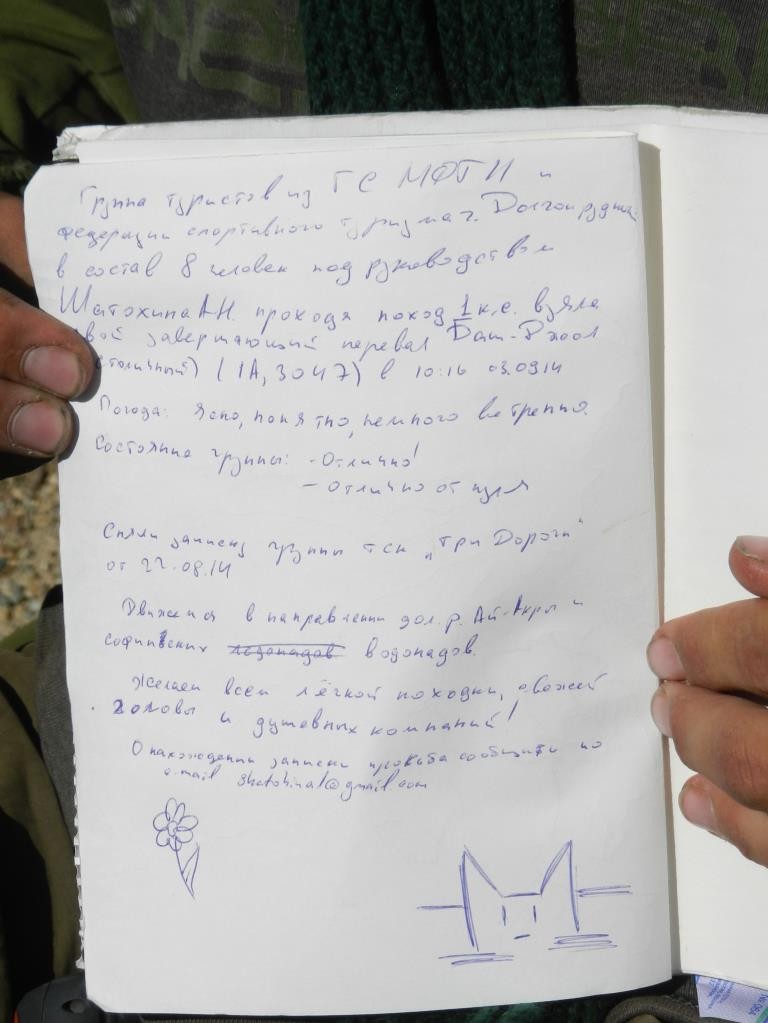 Группа туристов из ГС МФТИ и
федерации спортивного туризма г. Долгопрудный
в состав 8 человек под руководством
Шатохина А.Н. проходя поход 1 к.с. взяла
свой завершающий перевал Баш-Джол
(столичный) (1А, 3047) в 10:16 03.09.14
Погода: Ясно, понятно, немного ветренно.
Состояние группы: - Отлично!
- Отлично от нуля
Сняли записку группы тск „Три Дороги"
от 22.08.14
Движемся в направлении дол. р. Ай-Акры и
софийских ледопадов водопадов.
Желаем всем лёгкой походки, свежей
головы и душевных компаний!
О нахождении записки просьба сообщить по
e-mail @gmail.com